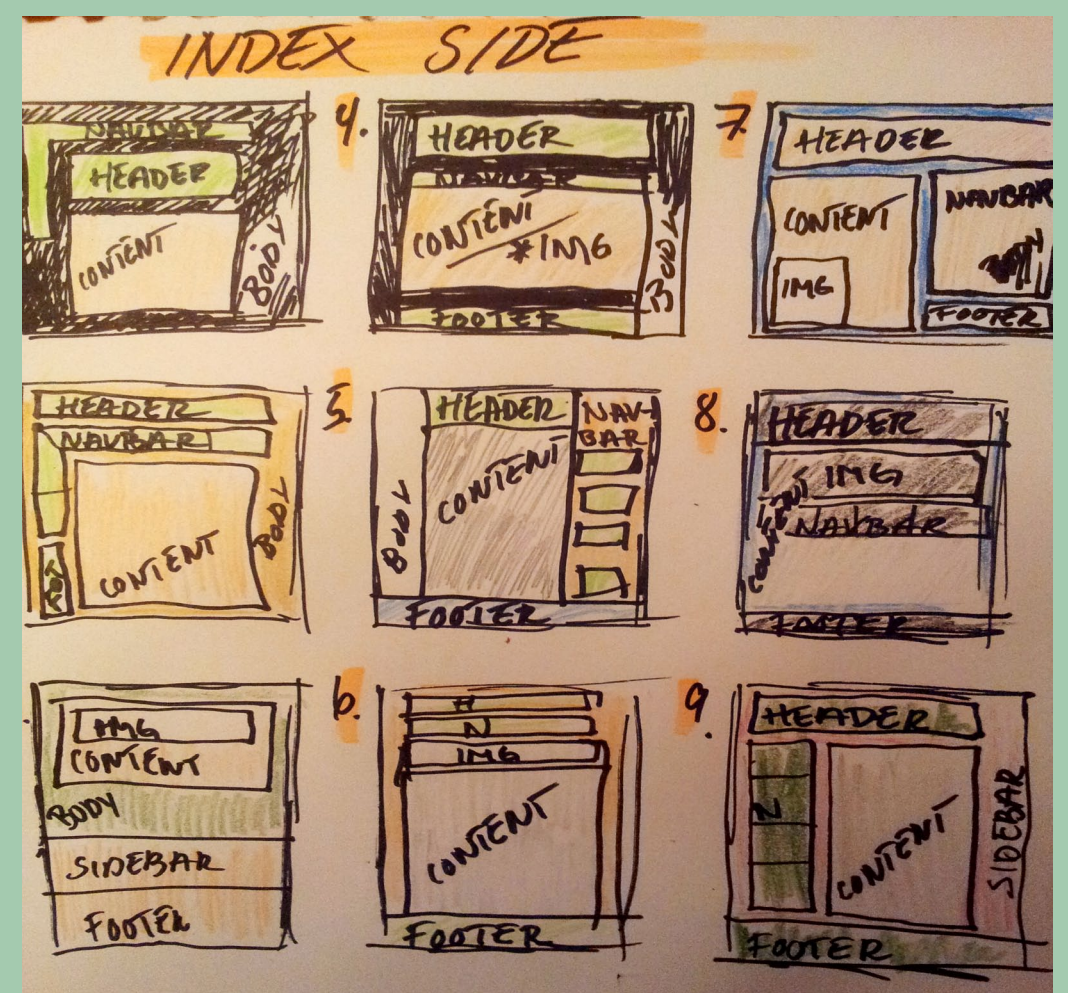 INDEX SIDE
NAVBAR
HEADER
CONTENT
BODY
4.
HEADER
NAVBAR
CONTENT
*IMG
BODY
FOOTER
7.
HEADER
CONTENT
IMG
NAVBAR
FOOTER
HEADER
NAVBAR
CONTENT
BODY
5.
BODY
HEADER
CONTENT
NAV-
BAR
FOOTER
8.
HEADER
IMG
NAVBAR
CONTENT
FOOTER
IMG
CONTENT
BODY
SIDEBAR
FOOTER
6.
H
N
IMG
CONTENT
FOOTER
9.
HEADER
N
CONTENT
SIDEBAR
FOOTER